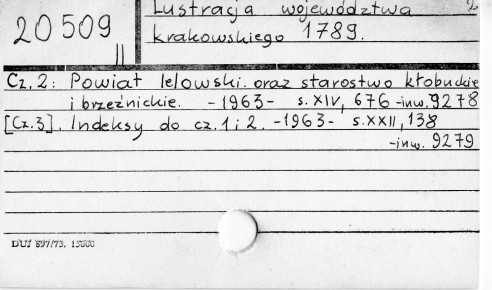 Lustracja województwa 2
20509 krakowskiego 1789.
II
Cz. 2: Powiat lelowski. oraz starostwo kłobuckie
i brzeźnickie. -1963- s. XIV, 676 -inw. 9278
[Cz.3]. Indeksy do cz. 1 i 2. -1963- s. XXII, 138
-inw. 9279
DUJ 897/73. 15000